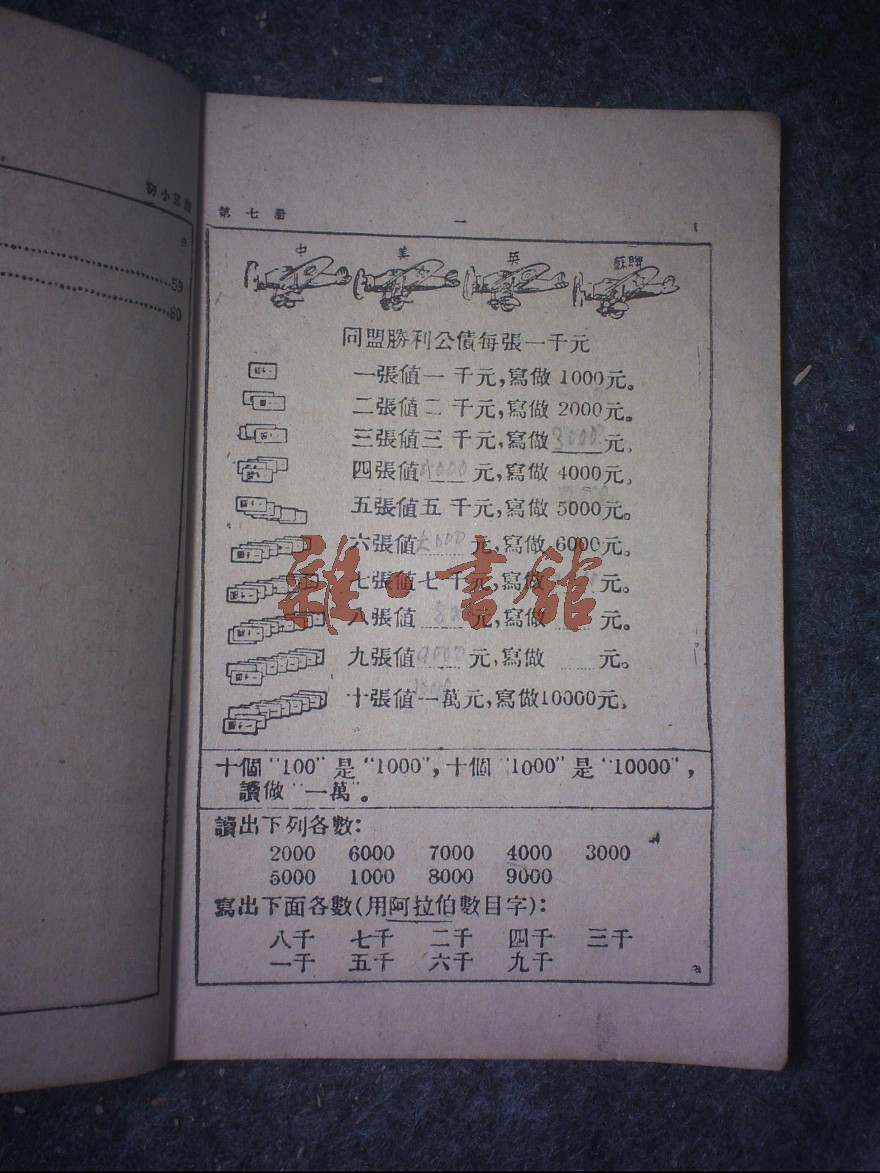 初小算術
9
59
60
第七册 一 1
中 美 英 蘇聯
同盟勝利公債每張一千元
一張值一千元,寫做 1000元。
二張值二千元,寫做 2000元。
三張值三千元,寫做 3000 元。
四張值 4000 元,寫做 4000元。
五張值五千元,寫做 5000元。
六張值 元,寫做 6000元。
七張值七千元,寫做 元。
八張值 元,寫做 元。
九張值 9000 元,寫做 元。
十張值一萬元,寫做10000元。
雜·書館
十個“100”是“1000”,十個“1000”是“10000”,
讀做“一萬”。
讀出下列各數:
2000 6000 7000 4000 3000
5000 1000 8000 9000
寫出下面各數(用阿拉伯數目字):
八千 七千 二千 四千 三千
一千 五千 六千 九千